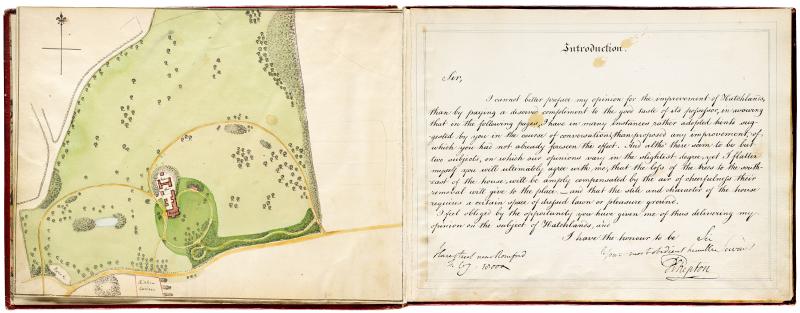 Kitchen
Garden
Introduction.
Sir,
I cannot better preface my opinion for the improvement of Hatchlands,
than by paying a deserved complement to the good taste of its possessor, in avowing
that in the following pages, I have in many instances rather adopted hints sug-
gested by you in the course of conversations, than proposed any improvement, of
which you had not already foreseen the effect. And altho' there seem to be but
two subjects, on which our opinions vary in the slightest degree, yet I flatter
myself you will ultimately agree with me, that the loss of the trees to the south-
east of the house, will be amply compensated by the air of cheerfulness their
removal will give to the place,— and that the stile and character of the house
requires a certain space of dressed lawn or pleasure ground.
I feel obliged by the opportunity you have given me of thus delivering my
opinion on the subject of Hatchlands, and
I have the honour to be Sir
Your most obedient humble Servant
Harestreet near Romford
H Repton